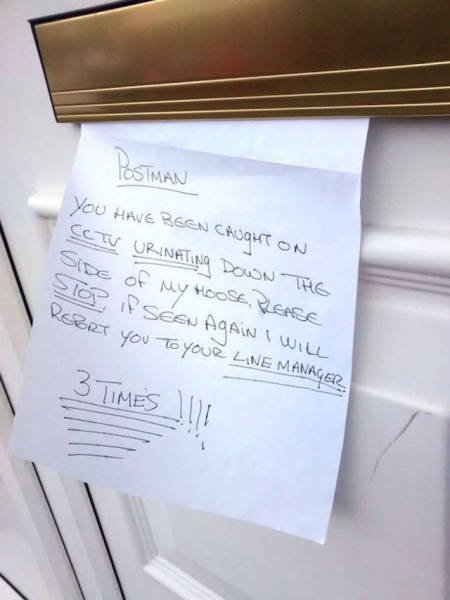 POSTMAN
YOU HAVE BEEN CAUGHT ON
CCTV URINATING DOWN THE
SIDE OF MY HOOSE, PLEASE
STOP, IF SEEN AGAIN I WILL
REPORT YOU TO YOUR LINE MANAGER
3 TIMES !!!!